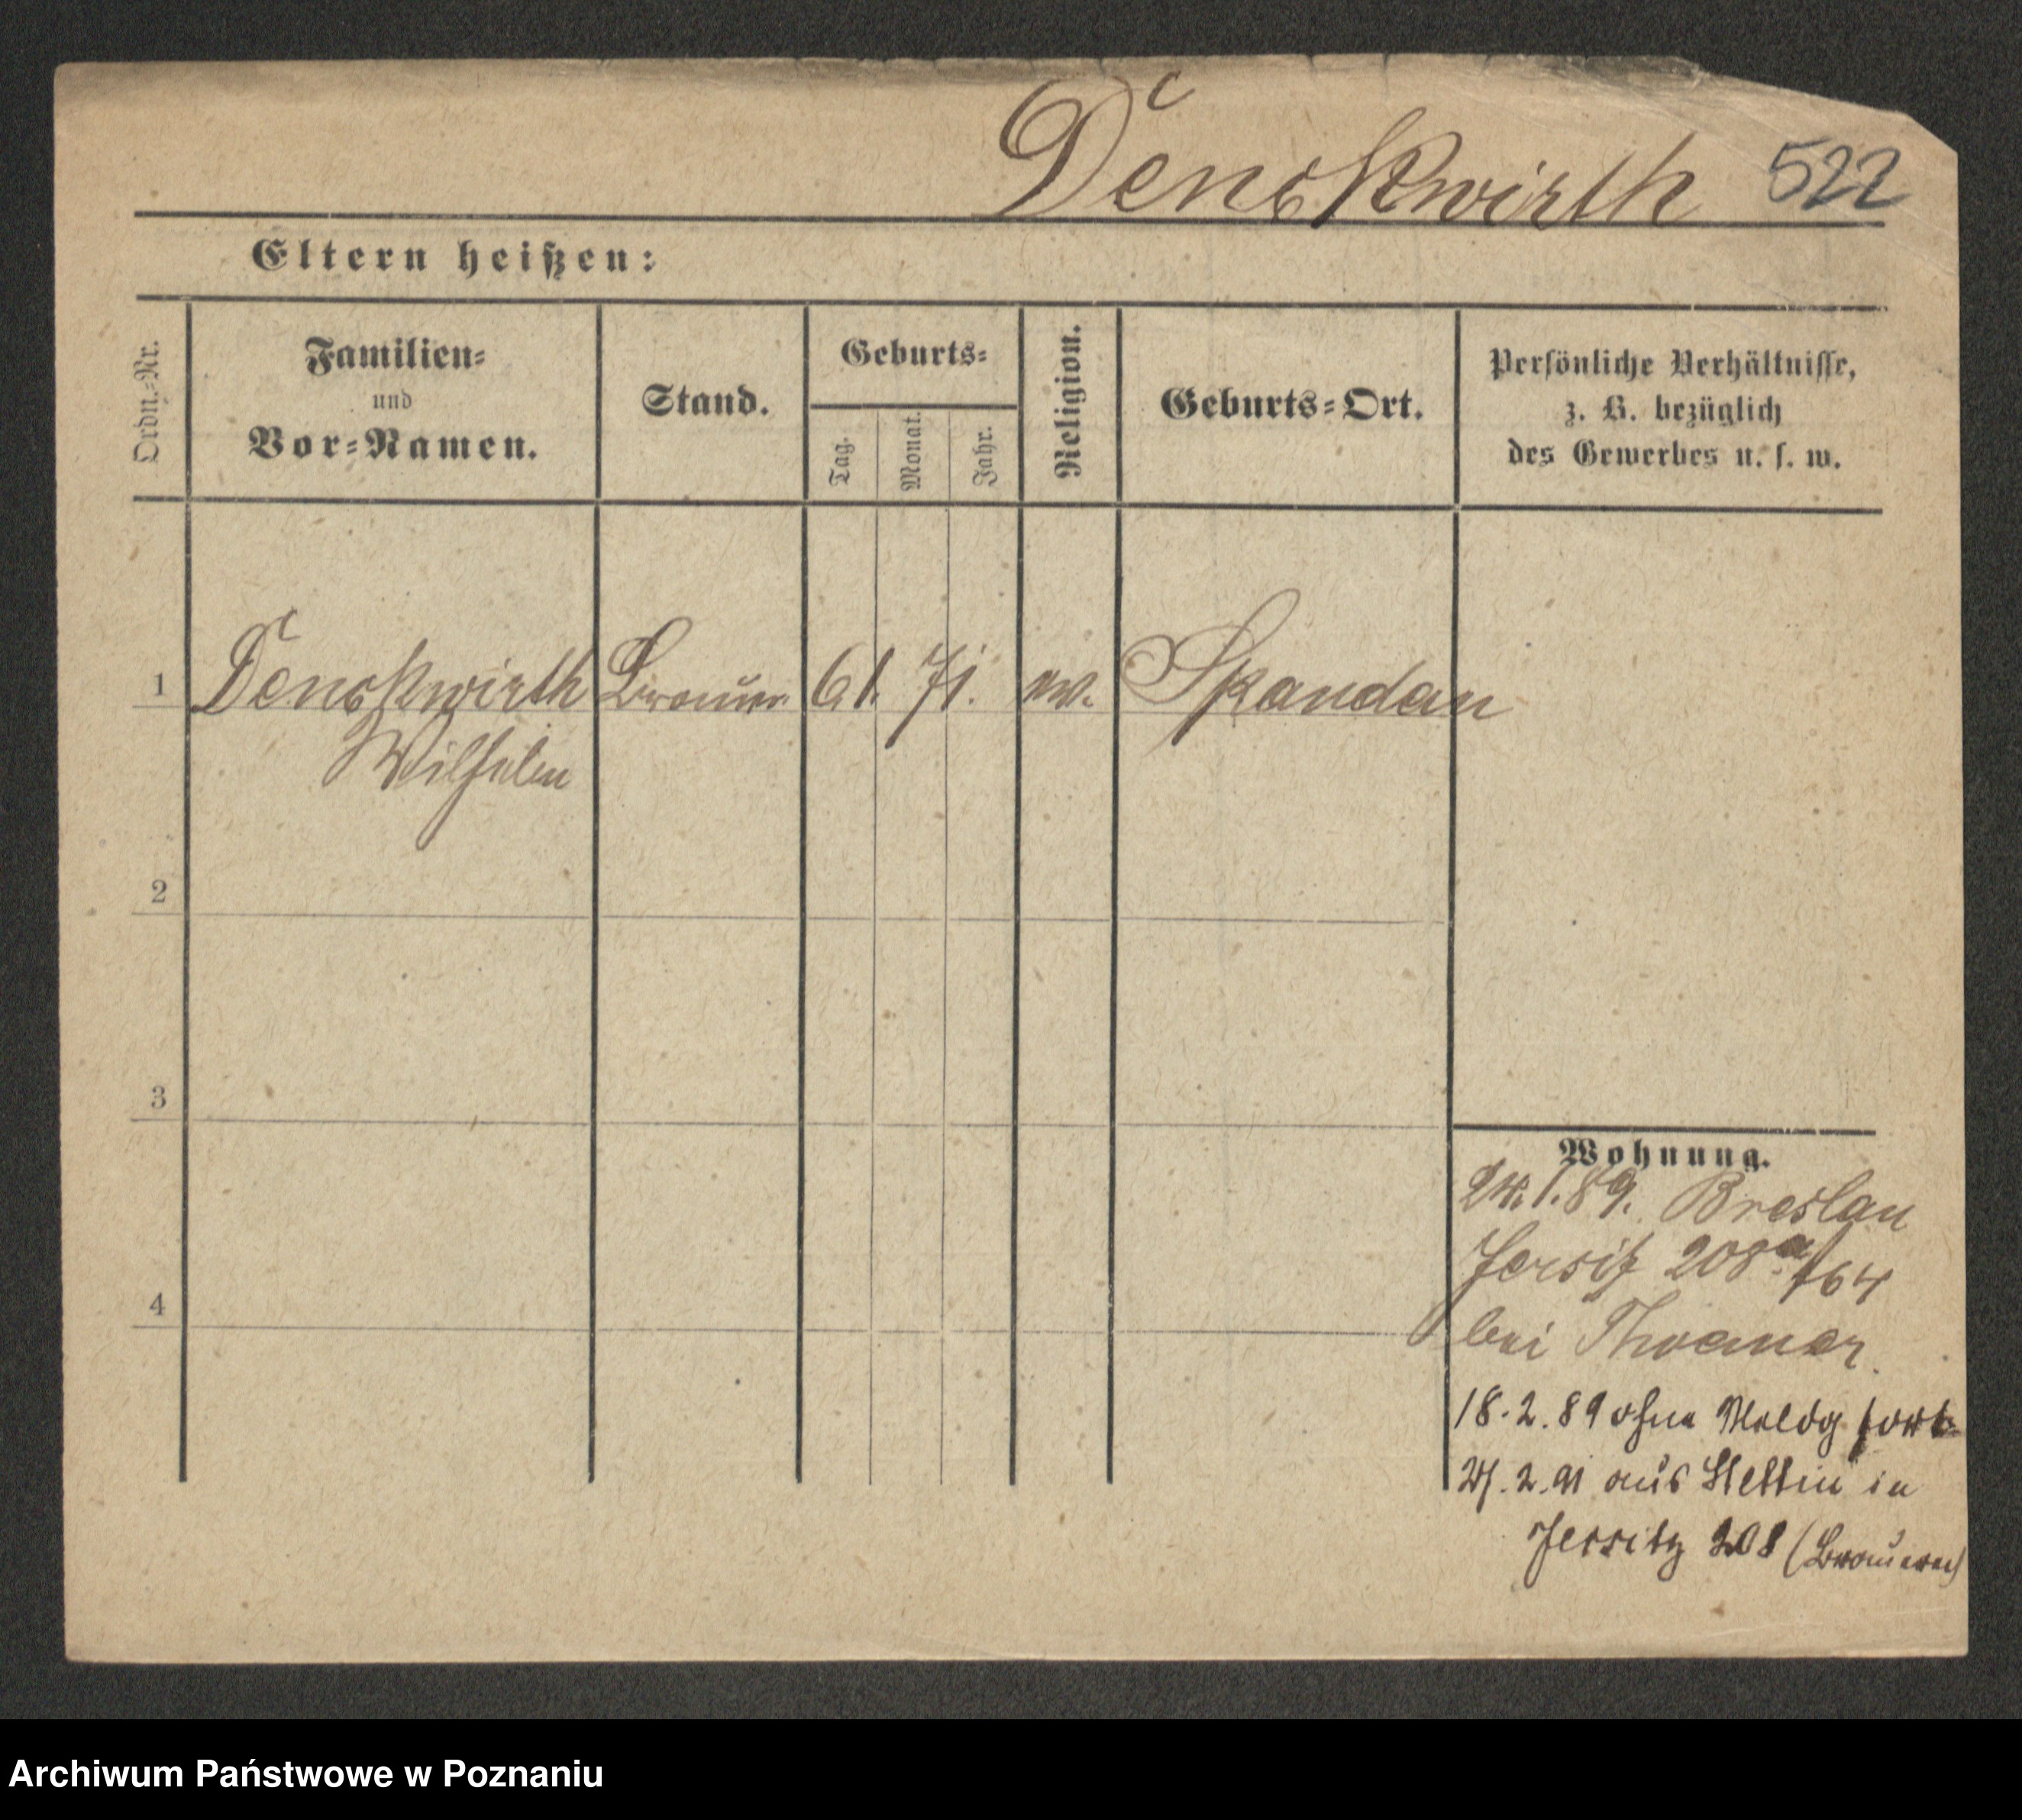 Denskwirth 522
Eltern heißen:
Ordn.-Nr.
Familien-
und
Vor-Namen.
Stand.
Geburts-
Tag.
Monat.
Jahr.
Religion.
Geburts-Ort.
Persönliche Verhältnisse,
z. B. bezüglich
des Gewerbes u. s. w.
1 Denskwirth Brauer 6 1. 71. ev. Skandau
Wilhelm
2
3
4
Wohnung.
24.1.89. Breslau
Jersitz 208a/64
bei
18.2.89 ohne Meldg fort
27.2.91 aus Stettin in
Jersitz 208 (Brauerei)
Archiwum Państwowe w Poznaniu